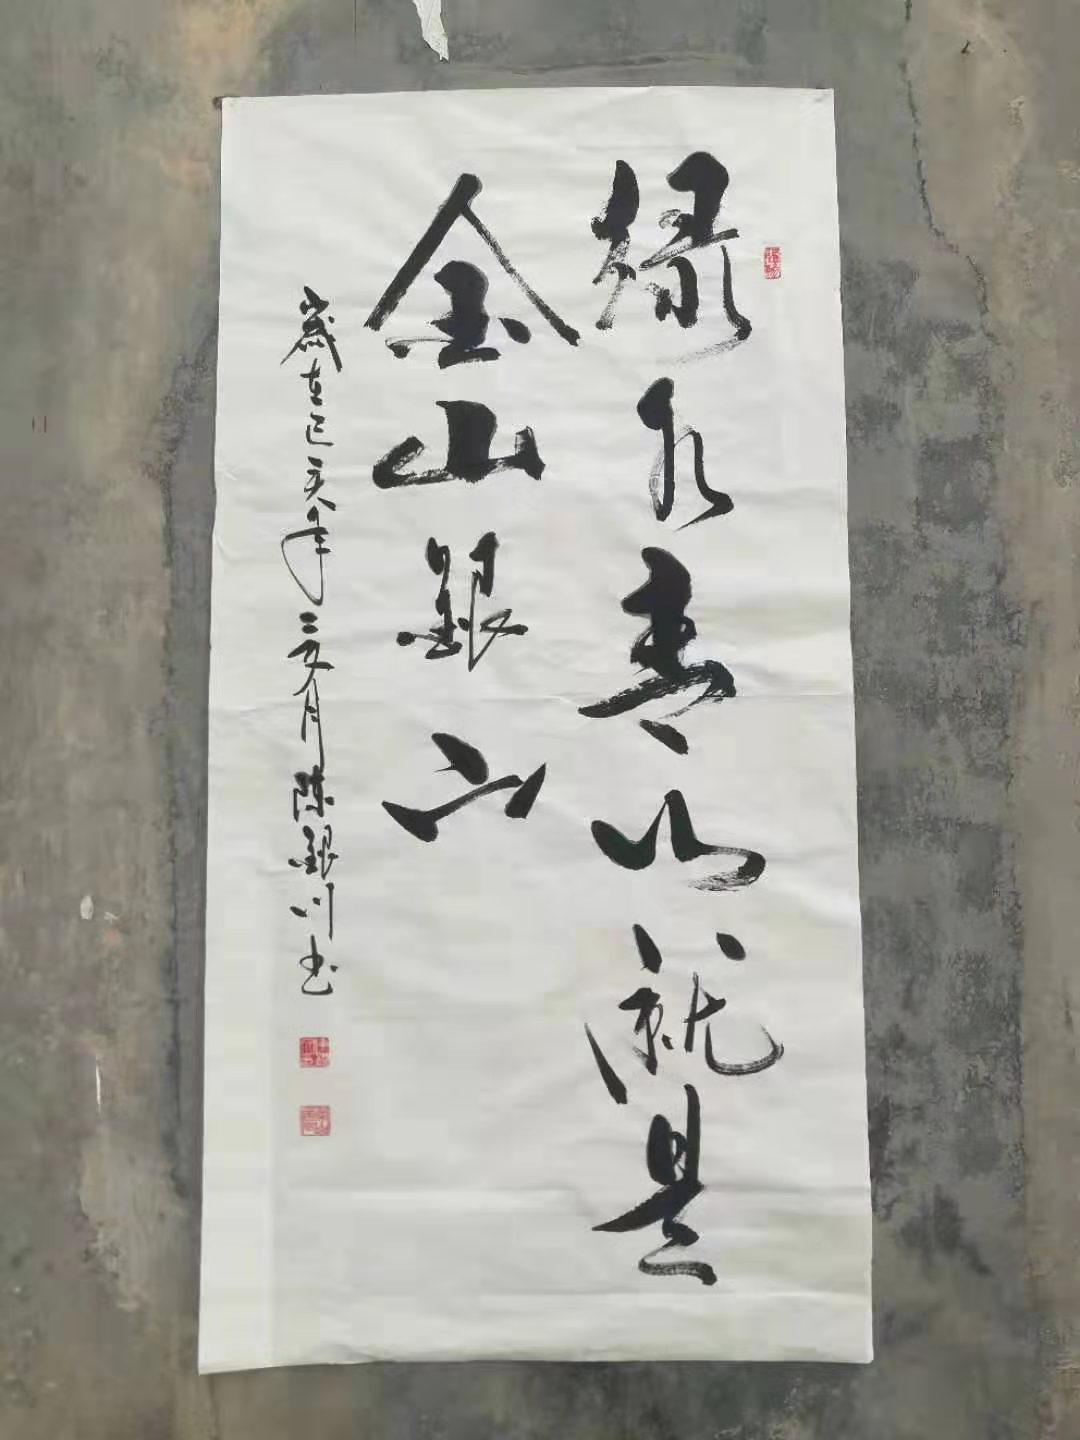 绿水青山就是
金山银山
岁在己亥年三月陈银川书